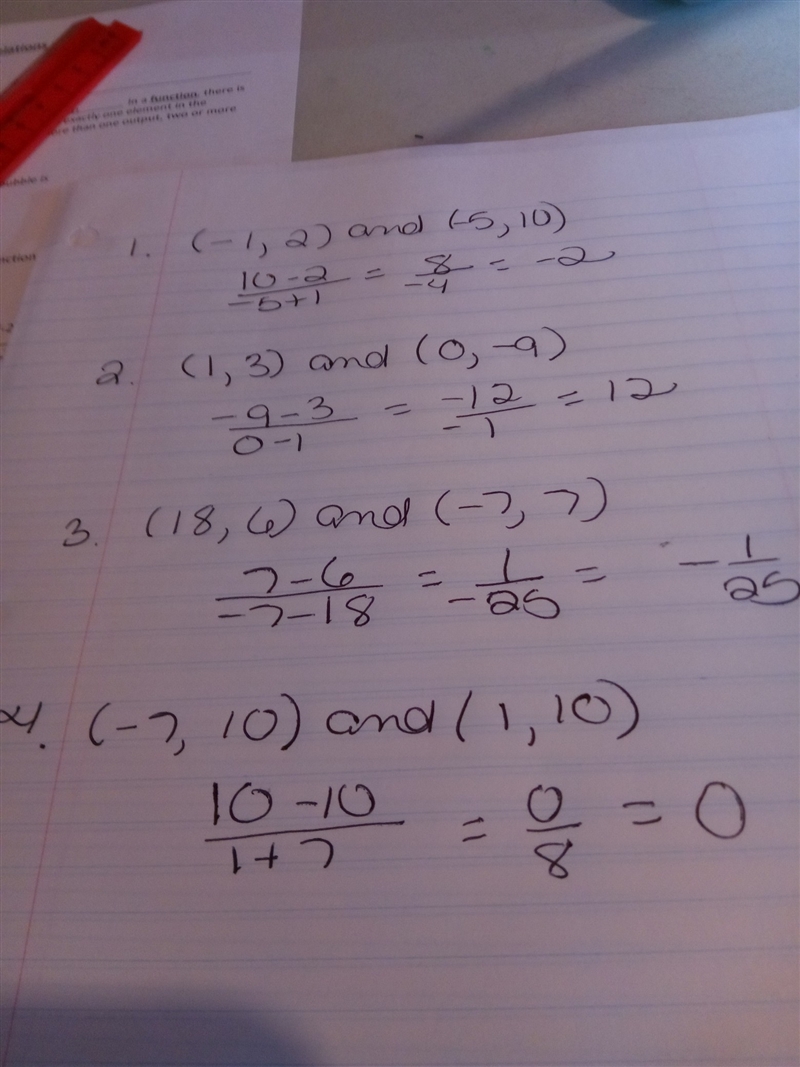 elations
in a function, there is
exactly one element in the
ore than one output, two or more
bubble is
nction
1. (-1, 2) and (-5, 10)
10-2/-5+1 = 8/-4 = -2
2. (1, 3) and (0, -9)
-9-3/0-1 = -12/-1 = 12
3. (18, 6) and (-7, 7)
7-6/-7-18 = 1/-25 = -1/25
4. (-7, 10) and (1, 10)
10-10/1+7 = 0/8 = 0